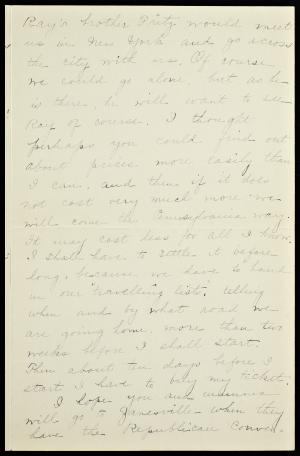 Ray's brother Fritz would meet
us in New York and go across
the city with us. Of course
we could go alone, but as he
is there, he will want to see
Ray of course. I thought
perhaps you could find out
about prices more easily than
I can, and then if it does
not cost very much more we
will come the Pennsylvania way.
It may cost less for all I know.
I shall have to settle it before
long, because we have to hand
in our "travelling lists," telling
when and by what road we
are going home, more than two
weeks before I shall start.
Then about ten days before I
start I have to buy my ticket.
I hope you and mamma
will go to Janesville when they
have the Republican Conven-